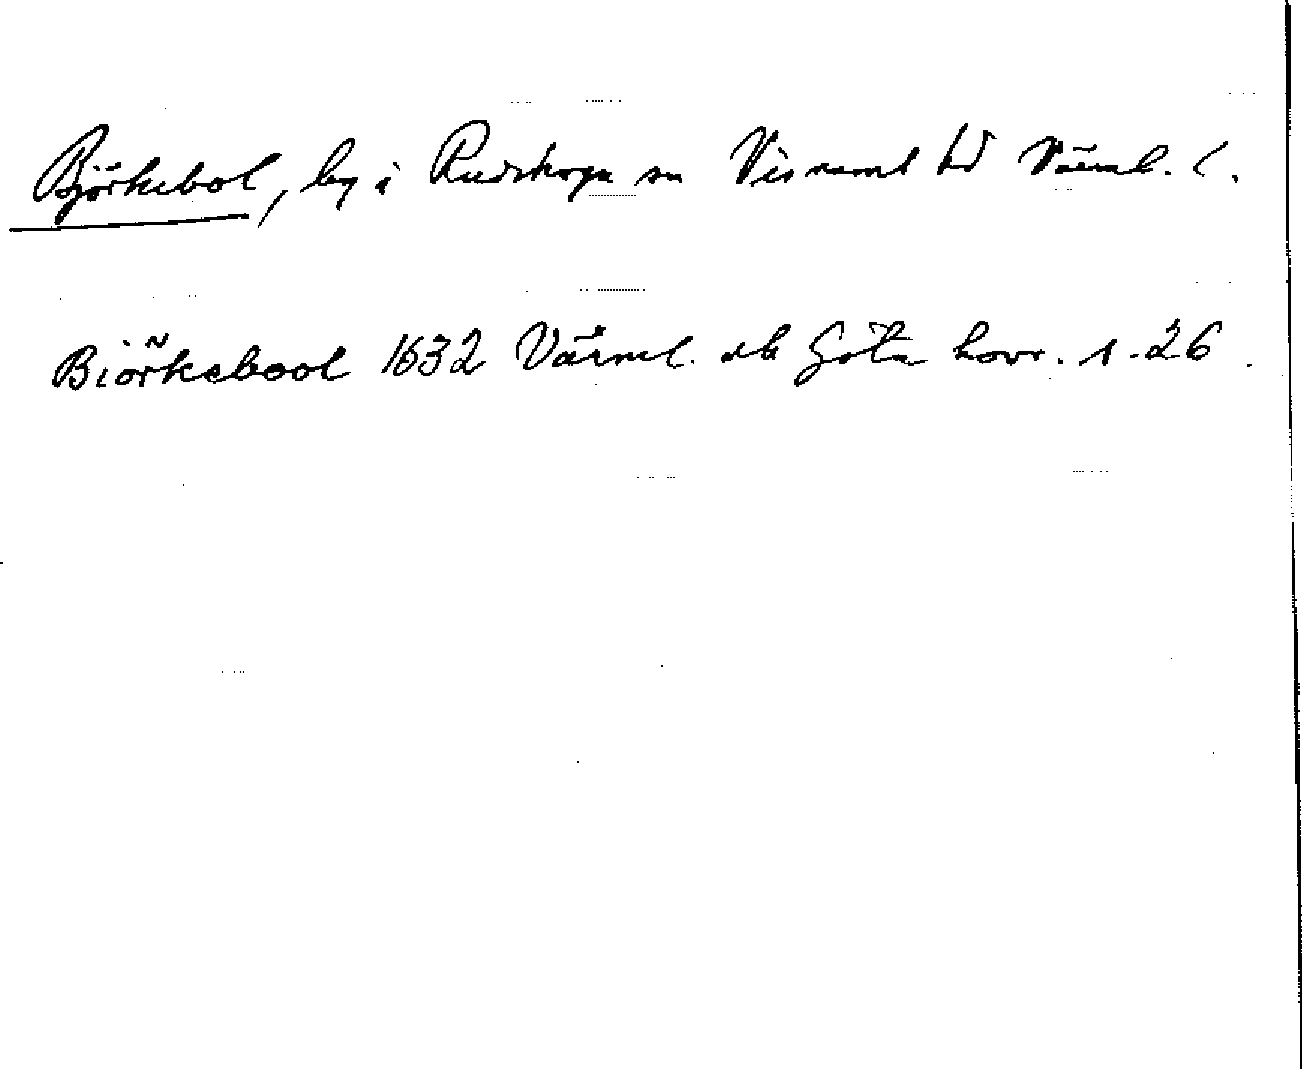 Björkebol, by i Rudskoga sn Visnums hd Värml. l.
Biörkebool 1632 Värml. db Göta hovr. 1.26.